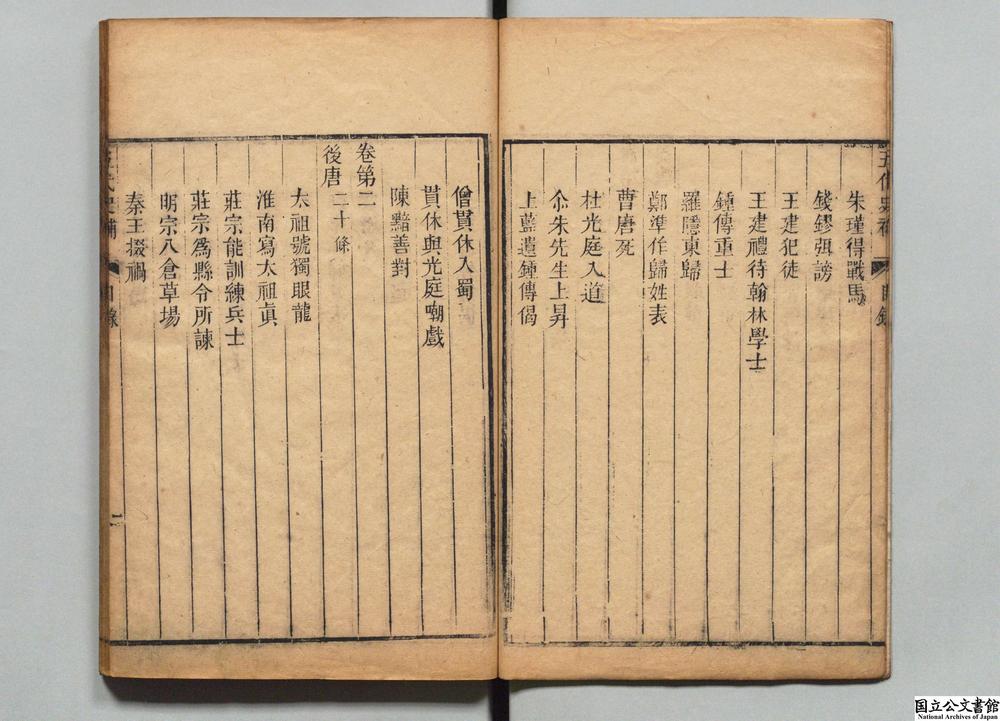 朱瑾得戰馬
錢鏐弭謗
王建犯徒
王建禮待翰林學士
鍾傳重士
羅隱東歸
鄭準作歸姓表
曹唐死
杜光庭入道
尒朱先生上昇
上藍遺鍾傳偈
僧貫休入蜀
貫休與光庭嘲戲
陳黯善對
卷第二
後唐 二十條
太祖號獨眼龍
淮南寫太祖真
莊宗能訓練兵士
莊宗爲縣令所諫
明宗入倉草場
秦王掇禍
国立公文書館
National Archives of Japan